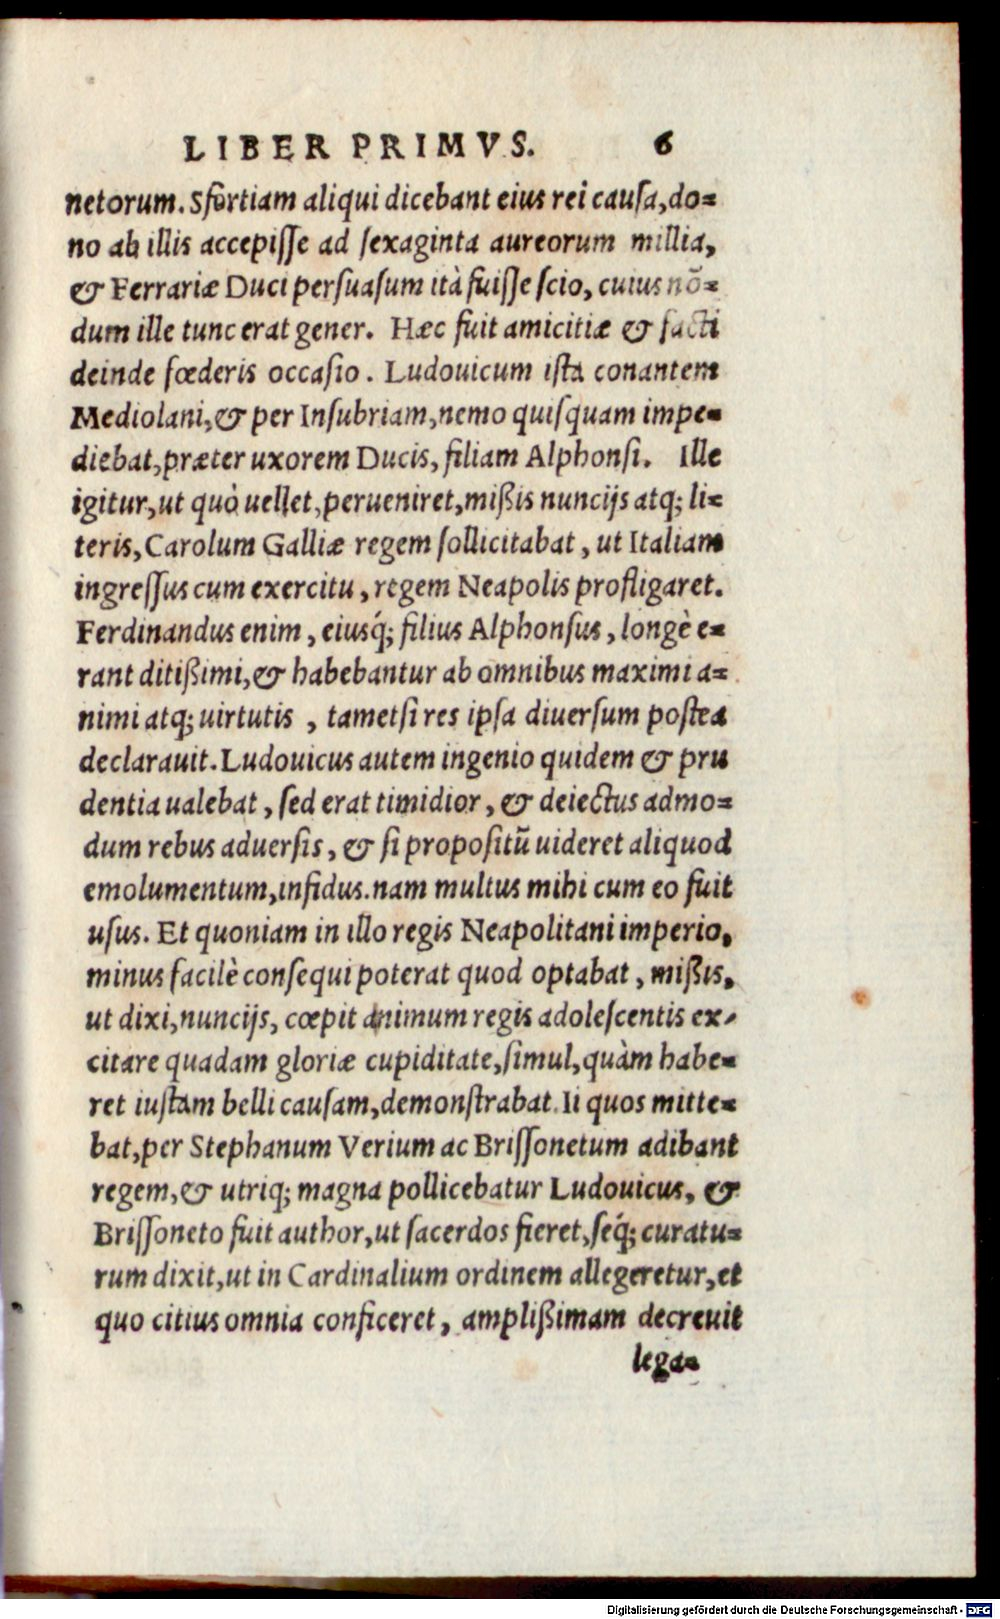 LIBER PRIMVS. 6
netorum. Sfortiam aliqui dicebant eius rei causa, do=
no ab illis accepisse ad sexaginta aureorum millia,
& Ferrariæ Duci persuasum ità fuisse scio, cuius nō=
dum ille tunc erat gener. Hæc fuit amicitiæ & facti
deinde fœderis occasio. Ludouicum ista conantem
Mediolani, & per Insubriam, nemo quisquam impe=
diebat, præter uxorem Ducis, filiam Alphonsi. Ille
igitur, ut quò uellet, perueniret, mißis nuncijs atq; li=
teris, Carolum Galliæ regem sollicitabat, ut Italiam
ingressus cum exercitu, regem Neapolis profligaret.
Ferdinandus enim, eiusq́; filius Alphonsus, longè e=
rant ditißimi, & habebantur ab omnibus maximi a=
nimi atq; uirtutis, tametsi res ipsa diuersum postea
declarauit. Ludouicus autem ingenio quidem & pru
dentia ualebat, sed erat timidior, & deiectus admo=
dum rebus aduersis, & si propositū uideret aliquod
emolumentum, infidus. nam multus mihi cum eo fuit
usus. Et quoniam in illo regis Neapolitani imperio,
minus facilè consequi poterat quod optabat, mißis,
ut dixi, nuncijs, cœpit animum regis adolescentis ex=
citare quadam gloriæ cupiditate, simul, quàm habe=
ret iustam belli causam, demonstrabat. Ii quos mitte=
bat, per Stephanum Verium ac Brissonetum adibant
regem, & utriq; magna pollicebatur Ludouicus, &
Brissoneto fuit author, ut sacerdos fieret, seq́; curatu=
rum dixit, ut in Cardinalium ordinem allegeretur, et
quo citius omnia conficeret, amplißimam decreuit
lega=
Digitalisierung gefördert durch die Deutsche Forschungsgemeinschaft - DFG